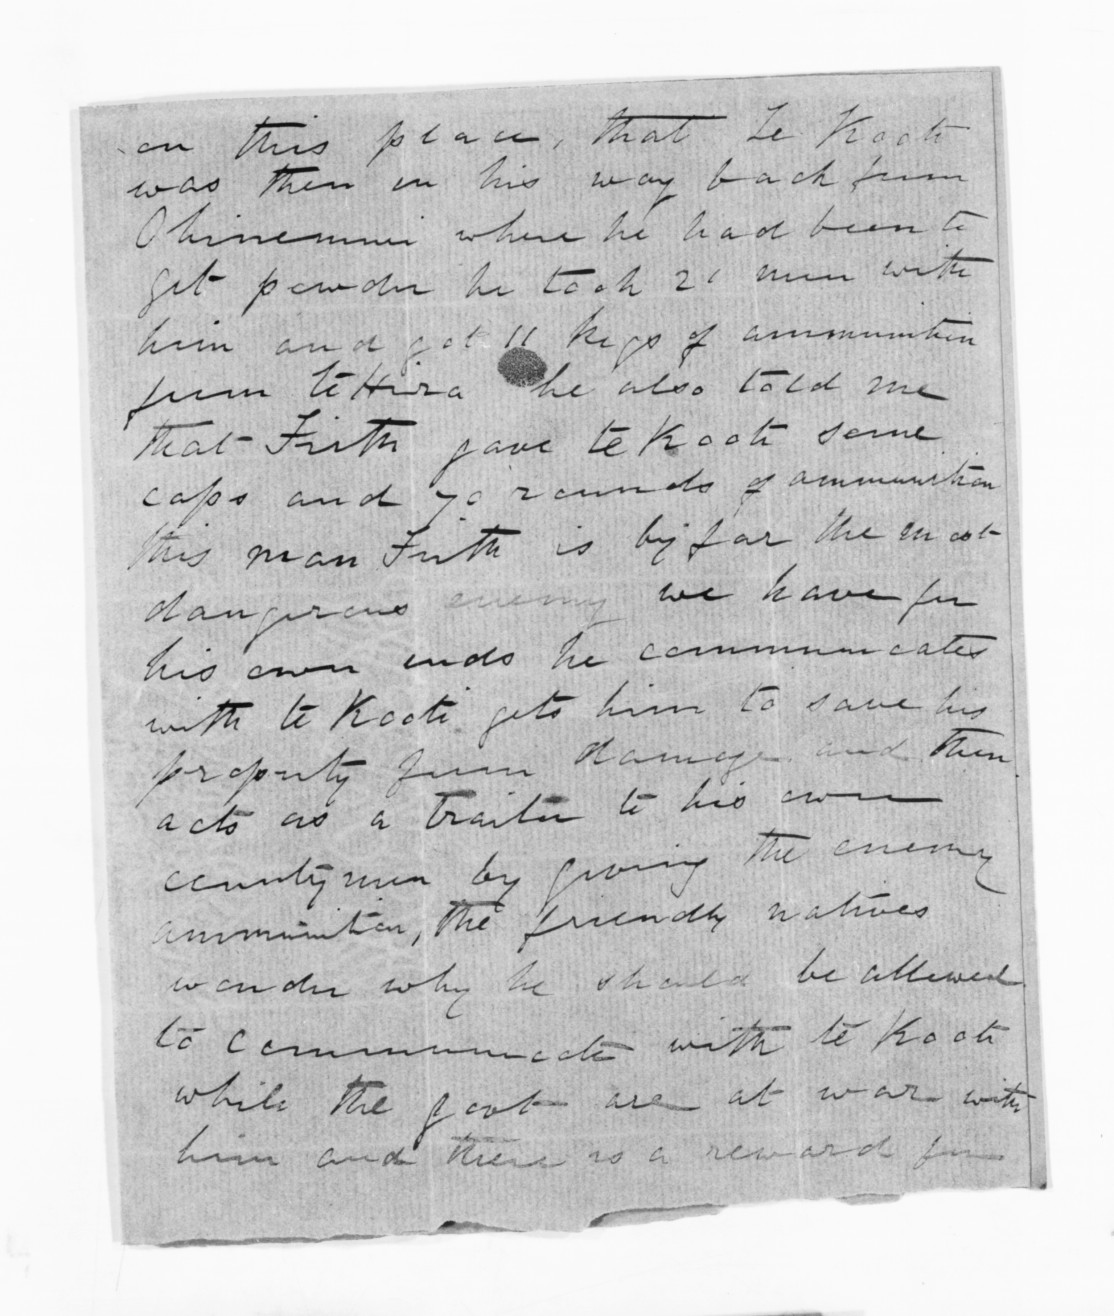 on this place, that Te Kooti
was then on his way back from
Ohinemuri where he had been to
get powder he took 21 men with
him and got 11 kegs of ammunition
from te Hira he also told me
that Firth gave te Kooti some
caps and 70 rounds of ammunition
this man Firth is by far the most
dangerous enemy we have for
his own ends he communicates
with te Kooti gets him to save his
property from damage and then
acts as a traitor to his own
countrymen by giving the enemy
ammunition, the friendly natives
wonder why he should be allowed
to communicate with te Kooti
while the govt are at war with
him and there is a reward for